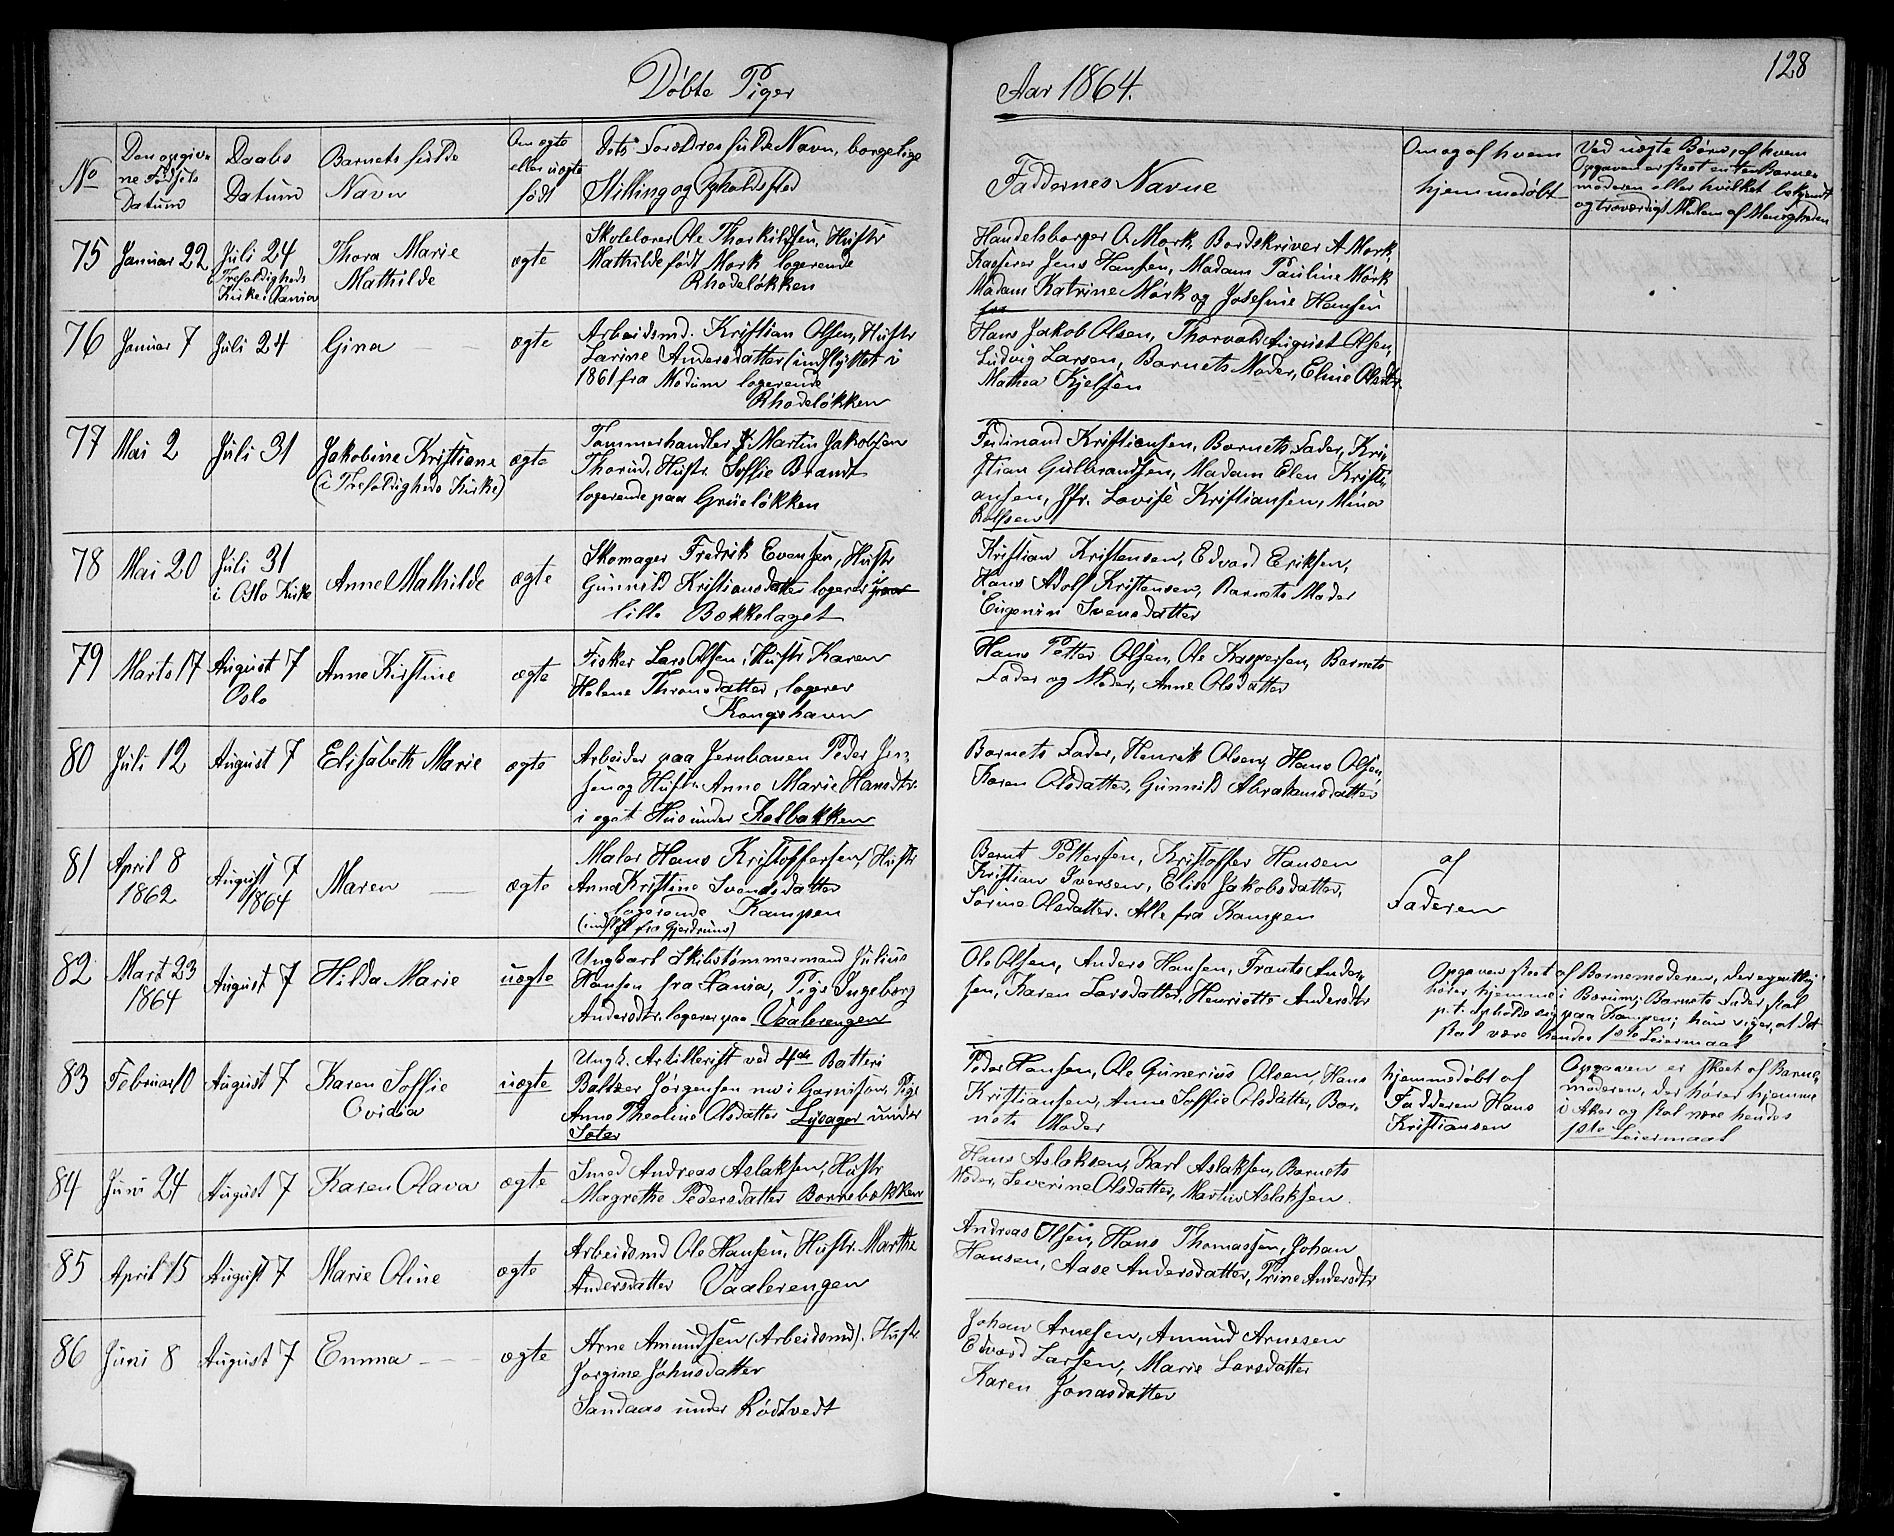 128
Døbte Piger
Aar 1864.
No
Den opgivne Fødsels Datum
Daabs Datum
Barnets fulde Navn
Om ægte eller uægte født
Dets Forældres fulde Navn, borgelige Stilling og Opholdssted
Faddernes Navne
Om og af hvem hjemmedøbt
Ved uægte Børn, af hvem Opgaven er skeet enten Barnemoderen eller hvilket bekjendt og troværdigt Medlem af Menigheden
75 Januar 22
Juli 24 Trefoldigheds Kirke i Xania
Thora Marie Mathilde
ægte
Skolelærer Ole Thorkildsen, Hustr
Mathilde født Mørk logerende
Rhodeløkken
Handelsborger O. Mørk, Bordskriver A. Mørk
Kasserer Jens Hansen, Madam Pauline Mørk
Madam Katrine Mørk og Josefine Hansen
76 Januar 7 Juli 24 Gina ægte
Arbeidsmd. Kristian Olsen, Hustr
Larine Andersdatter (indflyttet i
1861 fra Modum logerende
Rhodeløkken
Hans Jakob Olsen, Thorvald August Olsen,
Ludvig Larsen, Barnets Moder, Eline Olsdtr.
Mathea Kjelsen
77 Mai 2 Juli 31 Jakobine Kristiane ægte
(i Trefoldigheds Kirke)
Tømmerhandler Martin Jakobsen
Thorud, Hustr. Soffie Brandt
logerende paa Grüeløkken
Ferdinand Kristiansen, Barnets Fader, Kri-
stian Gulbrandsen, Madam Elen Kristi-
ansen, Jfr. Lovise Kristiansen, Mina
Rolfsen
78 Mai 20 Juli 31 i Oslo Kirke Anne Mathilde ægte
Skomager Fredrik Evensen, Hustr
Gunnild Kristiansdatter logerer paa
lille Bækkelaget
Kristian Kristensen, Edvard Eriksen,
Hans Adolf Kristensen, Barnets Moder
Eugenia Svensdatter
79 Marts 17 August 7 Oslo Anne Kirstine ægte
Fisker Lars Olsen, Hustr Karen
Helene Thronsdatter, logerer
Kongshavn
Hans Petter Olsen, Ole Kaspersen, Barnets
Fader og Moder, Anne Olsdatter
80 Juli 12 August 7 Elisabeth Marie ægte
Arbeider paa Jernbanen Peder Jen-
sen og Hustr. Anne Marie Hansdtr.
i eget Hus under Kalbakken
Barnets Fader, Henrik Olsen, Hans Olsen,
Karen Olsdatter, Gunnild Abrahamsdatter
81 April 8 1862 August 7 1864 Maren ægte
Maler Hans Kristoffersen, Hustr
Anna Kristine Svendsdatter
logerende Kampen
(indflyt fra Gjerdrum)
Bernt Pettersen, Kristoffer Hansen
Kristian Iversen, Elise Jakobsdatter,
Sørine Olsdatter. Alle fra Kampen
af Faderen
82 Mart 23 1864 August 7 Hilda Marie uægte
Ungkarl Skibstømmermand Julius
Hansen fra Xania, Pige Ingeborg
Andersdtr. logerer paa Vaalerengen
Ole Olsen, Anders Hansen, Frants Ander-
sen, Karen Larsdatter, Henriette Andersdtr
Opgaven skeet af Barnemoderen, der egentlig
hører hjemme i Bærum; Barnets Fader skal
p. t. opholde sig paa Kampen; hun siger, at det
skal være hendes 1ste Leiermaal
83 Februar 10 August 7 Karen Soffie Ovidia uægte
Ungk. Artillerist ved 4de Batteri
Baltzer Jørgensen nu i Garnison, Pige
Anne Theoline Olsdatter Lysager under
Sæter
Peder Hansen, Ole Gunerius Olsen, Hans
Kristiansen, Anne Soffie Olsdatter, Bar-
nets Moder
hjemmedøbt af
Fadderen Hans
Kristiansen
Opgaven er skeet af Barne-
moderen, der hører hjemme
i Aker og skal være hendes
1ste Leiermaal
84 Juni 24 August 7 Karen Olava ægte
Smed Andreas Aslaksen, Hustr
Magrethe Pedersdatter Borrebækken
Hans Aslaksen, Karl Aslaksen, Barnets
Moder, Severine Olsdatter, Martin Aslaksen.
85 April 15 August 7 Marie Oline ægte
Arbeidsmd Ole Hansen, Hustr. Marthe
Andersdatter Vaalerengen
Andreas Olsen, Hans Thomassen, Johan
Hansen, Aase Andersdatter, Trine Andersdtr
86 Juni 8 August 7 Emma ægte
Arne Amundsen (Arbeidsmd). Hustr.
Jørgine Johnsdatter
Sandaas under Rødtvedt
Johan Arnesen, Amund Arnesen
Edvard Larsen, Marie Larsdatter
Karen Jonasdatter